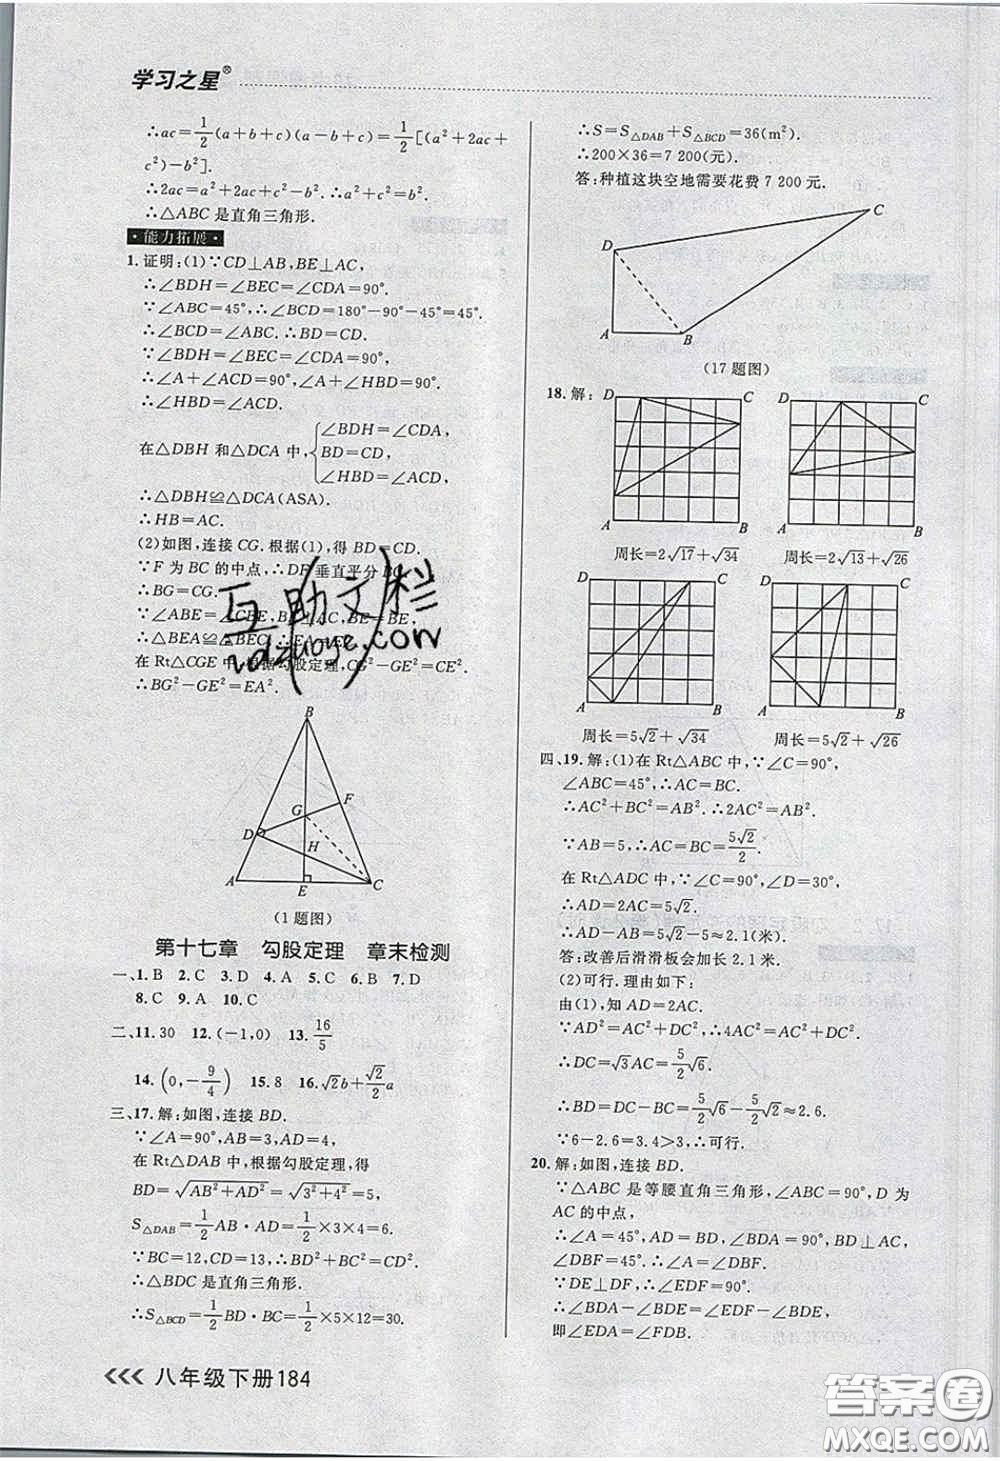 学习之星®
∴ac=1/2(a+b+c)(a-b+c)=1/2[(a²+2ac+
c²)-b²].
∴2ac=a²+2ac+c²-b². ∴a²+c²=b².
∴△ABC是直角三角形.
能力拓展
1. 证明:(1)∵CD⊥AB,BE⊥AC,
∴∠BDH=∠BEC=∠CDA=90°.
∵∠ABC=45°,∴∠BCD=180°-90°-45°=45°.
∴∠BCD=∠ABC. ∴BD=CD.
∵∠BDH=∠BEC=∠CDA=90°,
∴∠A+∠ACD=90°,∠A+∠HBD=90°.
∴∠HBD=∠ACD.
在△DBH和△DCA中,{∠BDH=∠CDA,
BD=CD,
∠HBD=∠ACD,
∴△DBH≌△DCA(ASA).
∴HB=AC.
(2)如图,连接CG. 根据(1),得BD=CD.
∵F为BC的中点,∴DF垂直平分BC.
∴BG=CG.
∵∠ABE=∠CBE,BE⊥AC,BE=BE,
∴△BEA≌△BEC. ∴EA=EC.
在Rt△CGE中,根据勾股定理,CG²-GE²=CE².
∴BG²-GE²=EA².
B
F
G
D
H
A E C
(1题图)
第十七章 勾股定理 章末检测
一、1.B 2.C 3.D 4.A 5.C 6.B 7.D
8.C 9.A 10.C
二、11.30 12.(-1,0) 13.16/5
14.(0,-9/4) 15.8 16.√2b+√2/2a
三、17.解:如图,连接BD.
∵∠A=90°,AB=3,AD=4,
在Rt△DAB中,根据勾股定理,得
BD=√AB²+AD²=√3²+4²=5,
S△DAB=1/2AB·AD=1/2×3×4=6.
∵BC=12,CD=13,∴BD²+BC²=CD².
∴△BDC是直角三角形.
∴S△BCD=1/2BD·BC=1/2×5×12=30.
∴S=S△DAB+S△BCD=36(m²).
∴200×36=7 200(元).
答:种植这块空地需要花费7 200元.
C
D
A B
(17题图)
18. 解:
D C D C
A B A B
周长=2√17+√34 周长=2√13+√26
A B A B
周长=5√2+√34 周长=5√2+√26
四、19.解:(1)在Rt△ABC中,∵∠C=90°,
∠ABC=45°,∴AC=BC.
∴AC²+BC²=AB². ∴2AC²=AB².
∵AB=5,∴AC=BC=5√2/2.
在Rt△ADC中,∵∠C=90°,∠D=30°,
∴AD=2AC=5√2.
∴AD-AB=5√2-5≈2.1(米).
答:改善后滑滑板会加长2.1米.
(2)可行. 理由如下:
由(1),知AD=2AC.
∵AD²=AC²+DC²,
∴DC=√3AC=5/2√6.
∴BD=DC-BC=5/2√6-5√2/2≈2.6.
∵6-2.6=3.4>3,∴可行.
20. 解:如图,连接BD.
∵△ABC是等腰直角三角形,∠ABC=90°,D为
AC的中点,
∴∠A=45°,AD=BD,∠BDA=90°,∠DBA=
∠DBF=45°. ∴∠A=∠DBF.
∵DE⊥DF,∴∠EDF=90°.
∴∠BDA-∠BDE=∠EDF-∠BDE,
即∠EDA=∠FDB.
八年级下册184
互助文栏
答案圈
MXQE.COM